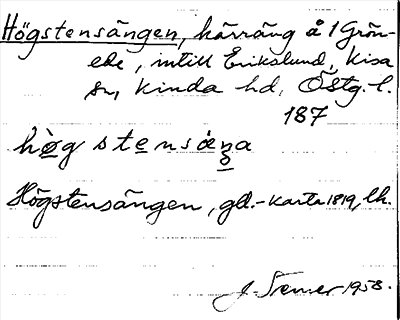 Högstensängen, hårräng å 1 Grön-
ede, intill Erikslund, Kisa
sn, Kinda hd, Östg. l.
187
hög stensäŋa
Högstensängen, gd.-karta 1819, lh.
J. Stemer 1958.